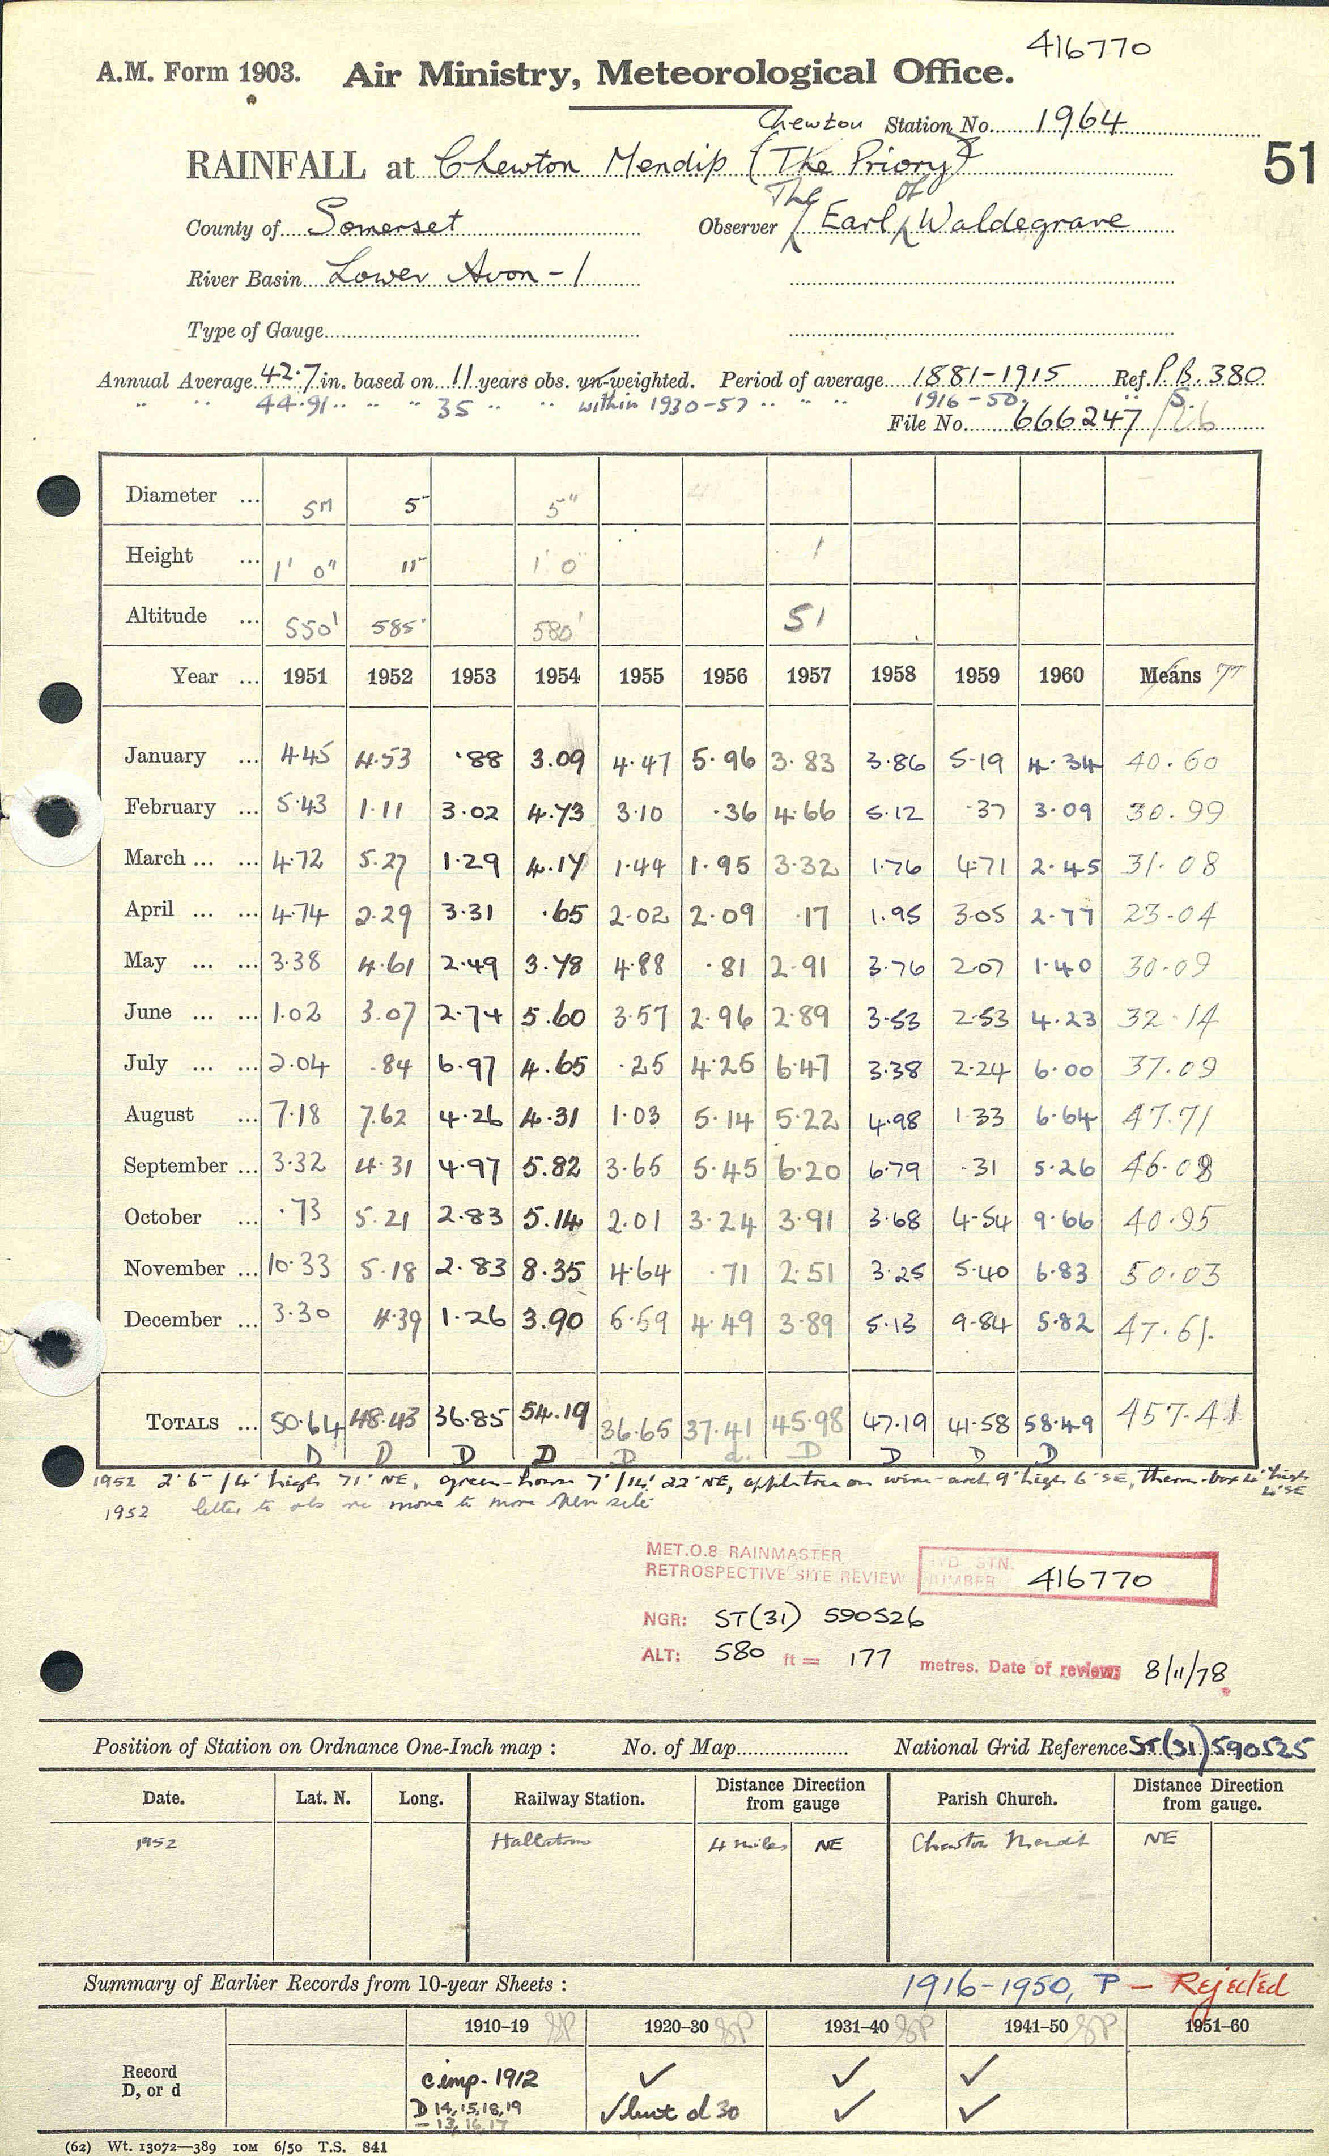 416770
A.M. Form 1903. Air Ministry, Meteorological Office.
Chewton Station No. 1964
RAINFALL at Chewton Mendip (The Priory) 51
The of
County of Somerset Observer Earl Waldegrave
River Basin Lower Avon - 1
Type of Gauge
Annual Average 42.7 in. based on 11 years obs. un-weighted. Period of average 1881-1915 Ref. P.B. 380
" " 44.91 " " " 35 " " within 1930-57 " " " 1916-50. " S.
File No. 666247/26
Diameter ... 5" 5 5"
Height ... 1' 0" 11" 1' 0" 1
Altitude ... 550' 585' 580' 51
Year ... 1951 1952 1953 1954 1955 1956 1957 1958 1959 1960 Means TT
January ... 4.45 4.53 .88 3.09 4.47 5.96 3.83 3.86 5.19 4.34 40.60
February ... 5.43 1.11 3.02 4.73 3.10 .36 4.66 5.12 .37 3.09 30.99
March ... ... 4.72 5.27 1.29 4.17 1.44 1.95 3.32 1.76 4.71 2.45 31.08
April ... ... 4.74 2.29 3.31 .65 2.02 2.09 .17 1.95 3.05 2.77 23.04
May ... ... 3.38 4.61 2.49 3.78 4.88 .81 2.91 3.76 2.07 1.40 30.09
June ... ... 1.02 3.07 2.74 5.60 3.57 2.96 2.89 3.53 2.53 4.23 32.14
July ... ... 2.04 .84 6.97 4.65 .25 4.25 6.47 3.38 2.24 6.00 37.09
August ... 7.18 7.62 4.26 4.31 1.03 5.14 5.22 4.98 1.33 6.64 47.71
September ... 3.32 4.31 4.97 5.82 3.65 5.45 6.20 6.79 .31 5.26 46.08
October ... .73 5.21 2.83 5.14 2.01 3.24 3.91 3.68 4.54 9.66 40.95
November ... 10.33 5.18 2.83 8.35 4.64 .71 2.51 3.25 5.40 6.83 50.03
December ... 3.30 4.39 1.26 3.90 5.59 4.49 3.89 5.13 9.84 5.82 47.61.
TOTALS ... 50.64 48.43 36.85 54.19 36.65 37.41 45.98 47.19 41.58 58.49 457.41
D D D D D d. D D D D
1952 2'6"/4' high 71' NE, green-house 7'/14' 22' NE, appletree on wire-arch 9' high 6' SE, therm-box 4' high 4' SE
1952 letter to obs re move to more open site
MET.O.8 RAINMASTER
RETROSPECTIVE SITE REVIEW STN. NUMBER 416770
NGR: ST(31) 590526
ALT: 580 ft = 177 metres. Date of review: 8/11/78
Position of Station on Ordnance One-Inch map : No. of Map National Grid Reference ST(31)590525
Date. Lat. N. Long. Railway Station. Distance Direction from gauge Parish Church. Distance Direction from gauge.
1952 Hallatrow 4 miles NE Chewton Mendip NE
Summary of Earlier Records from 10-year Sheets : 1916-1950, P - Rejected
1910-19 1920-30 1931-40 1941-50 1951-60
Record c imp. 1912 ✓ ✓ ✓
D, or d D 14,15,18,19 ✓ but d 30 ✓ ✓
- 13,16,17
(62) Wt. 13072—389 10M 6/50 T.S. 841